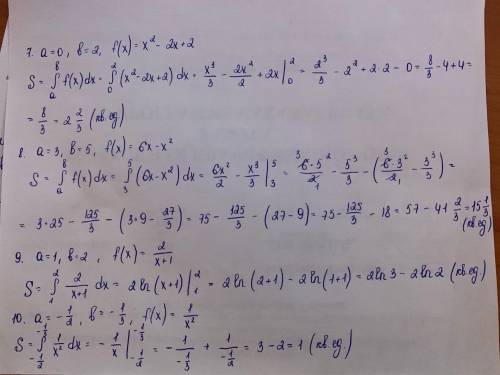 7. a=0, b=2, f(x)=x² - 2x+2
S = ∫ₐᵇ f(x)dx = ∫₀² (x²-2x+2) dx = x³/3 - 2x²/2 + 2x |₀² = 2³/3 - 2² + 2·2 - 0 = 8/3 - 4+4 =
= 8/3 = 2 2/3 (кв.ед)
8. a=3, b=5, f(x)=6x-x²
S = ∫ₐᵇ f(x)dx = ∫₃⁵ (6x-x²) dx = 6x²/2 - x³/3 |₃⁵ = 6·5²/2 - 5³/3 - (6·3²/2 - 3³/3) =
= 3·25 - 125/3 - (3·9 - 27/3) = 75 - 125/3 - (27-9) = 75 - 125/3 - 18 = 57 - 41 2/3 = 15 1/3 (кв.ед)
9. a=1, b=2, f(x) = 2/(x+1)
S = ∫₁² 2/(x+1) dx = 2 ln (x+1) |₁² = 2 ln (2+1) - 2 ln (1+1) = 2 ln 3 - 2 ln 2 (кв.ед)
10. a = -1/2, b = -1/3, f(x) = 1/x²
S = ∫ 1/x² dx = - 1/x | = - 1/(-1/3) + 1/(-1/2) = 3 - 2 = 1 (кв.ед)